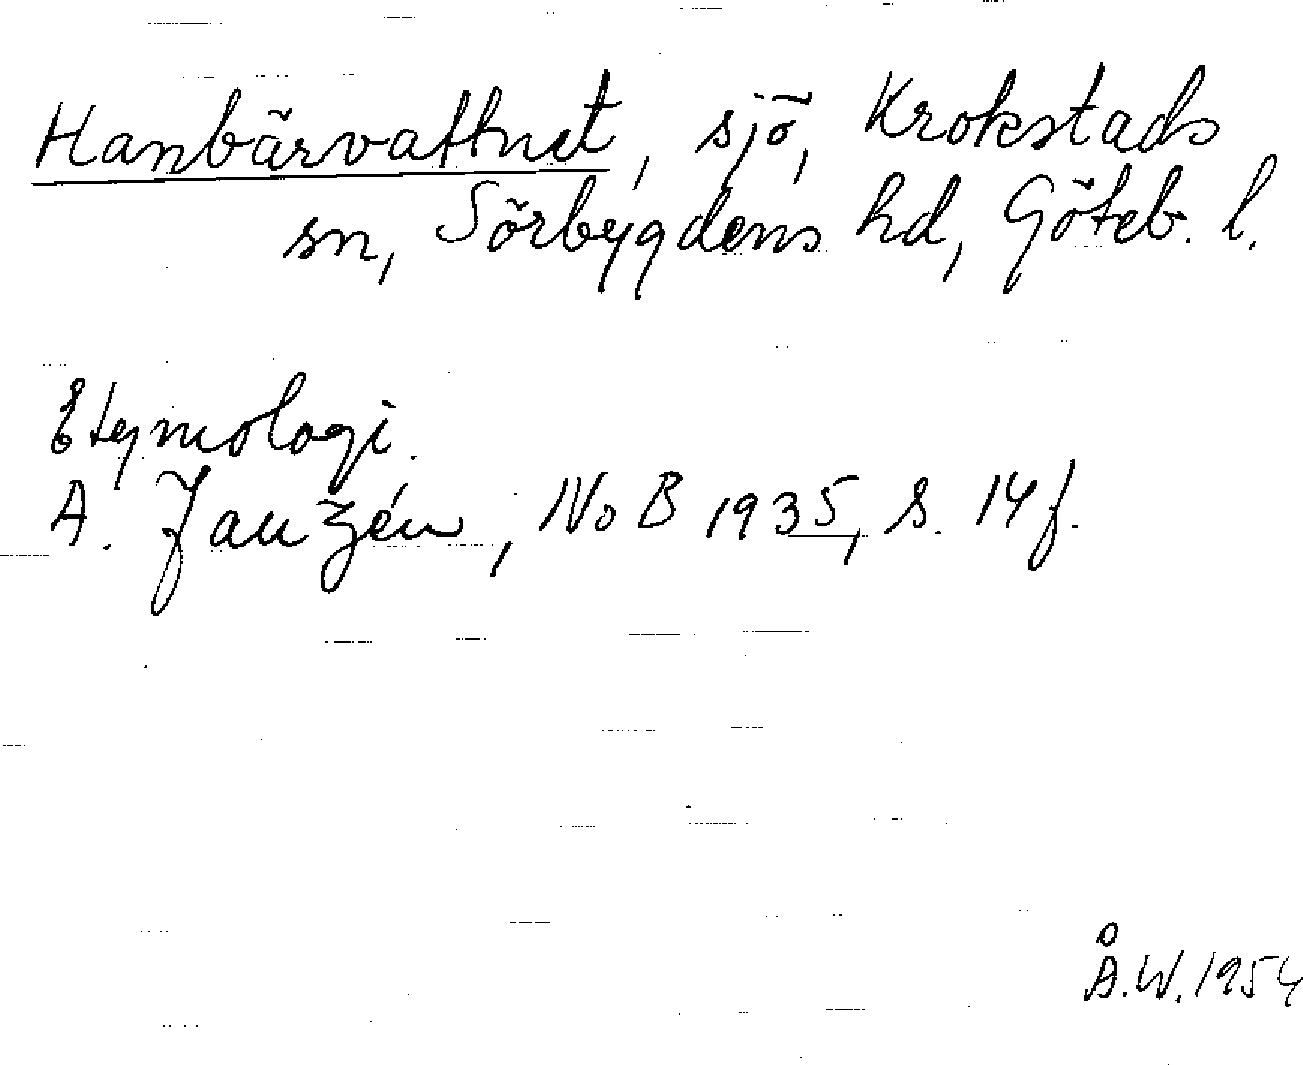 Hanbärvattnet, sjö, Krokstads
sn, Sörbygdens hd, Göteb. l.
Etymologi.
A. Janzén, NoB 1935, s. 14 f.
Å.W. 1954